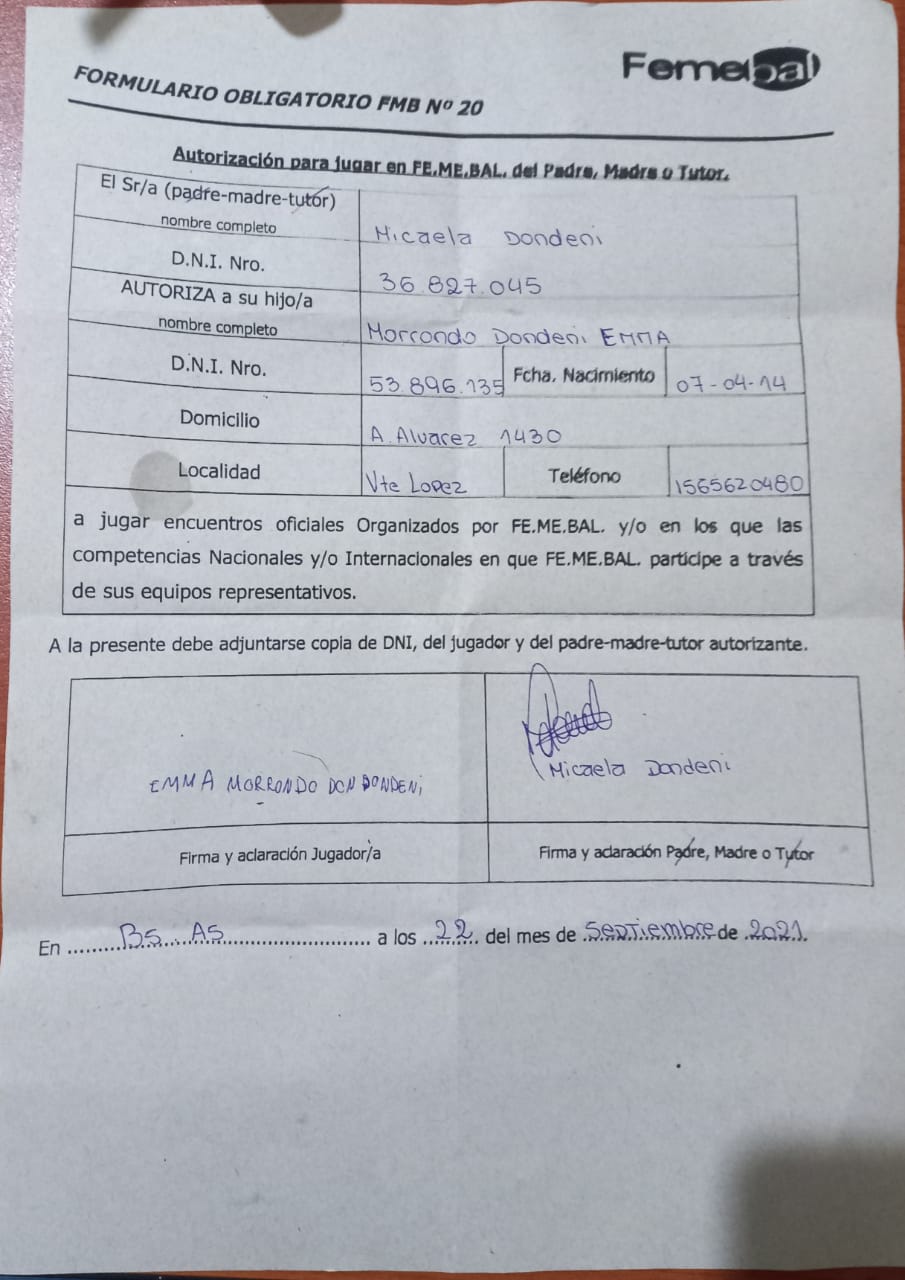 FORMULARIO OBLIGATORIO FMB Nº 20
Femebal
Autorización para jugar en FE.ME.BAL. del Padre, Madre o Tutor.
El Sr/a (padre-madre-tutor)
nombre completo Micaela Dondeni
D.N.I. Nro. 36.827.045
AUTORIZA a su hijo/a
nombre completo Morrondo Dondeni EMMA
D.N.I. Nro. 53.896.135 Fcha. Nacimiento 07-04-14
Domicilio A. Alvarez 1430
Localidad Vte Lopez Teléfono 1565620480
a jugar encuentros oficiales Organizados por FE.ME.BAL. y/o en los que las
competencias Nacionales y/o Internacionales en que FE.ME.BAL. participe a través
de sus equipos representativos.
A la presente debe adjuntarse copia de DNI, del jugador y del padre-madre-tutor autorizante.
EMMA MORRONDO DON DONDENi
Micaela Dondeni
Firma y aclaración Jugador/a
Firma y aclaración Padre, Madre o Tutor
En Bs. As a los 22 del mes de Septiembre de 2021.